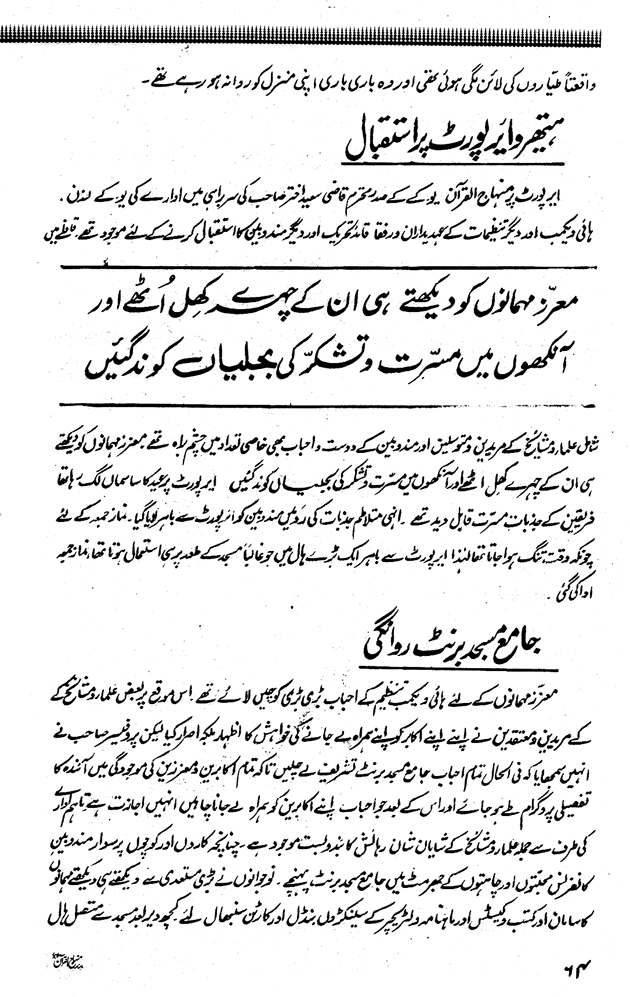 واقعتاً طیاروں کی لائن لگی ہوئی تھی اور وہ باری باری اپنی منزل کو روانہ ہو رہے تھے۔
ہیتھرو ائرپورٹ پر استقبال
ایرپورٹ پر منہاج القرآن یو کے کے صدر محترم قاضی سعید اختر صاحب کی سربراہی میں ادارے کی یو کے لندن ،
ہائی ویکمب اور دیگر تنظیمات کے عہدیداران و رفقا قائد تحریک اور دیگر مندوبین کا استقبال کرنے کے لئے موجود تھے قافلے میں
معزز مہمانوں کو دیکھتے ہی ان کے چہرے کھل اُٹھے اور
آنکھوں میں مسرّت و تشکّر کی بجلیاں کوند گئیں
شامل علماء و مشائخ کے مریدین و متوسلین اور مندوبین کے دوست و احباب بھی خاصی تعداد میں چشم براہ تھے معزز مہمانوں کو دیکھتے
ہی ان کے چہرے کھل اٹھے اور آنکھوں میں مسرت و تشکر کی بجلیاں کوند گئیں ایرپورٹ پر عید کا سا سماں لگ رہا تھا
فریقین کے جذبات مسرت قابل دید تھے ۔ انہی متلاطم جذبات کی رو میں مندوبین کو ائرپورٹ سے باہر لایا گیا۔ نماز جمعہ کے لئے
چونکہ وقت تنگ ہوا جاتا تھا لہٰذا ایرپورٹ سے باہر ایک بڑے ہال میں جو غالباً مسجد کے طور پر ہی استعمال ہوتا تھا، نماز جمعہ
ادا کی گئی ۔
جامع مسجد برنٹ روانگی
معزز مہمانوں کے لئے ہائی ویکمب تنظیم کے احباب بڑی بڑی کوچیں لائے تھے اس موقع پر بعض علماء و مشائخ کے
کے مریدین و معتقدین نے اپنے اپنے اکابر کو اپنے ہمراہ لے جانے کی خواہش کا اظہار بلکہ اصرار کیا لیکن پروفیسر صاحب نے
انہیں سمجھایا کہ فی الحال تمام احباب جامع مسجد برنٹ تشریف لے چلیں تاکہ تمام اکابرین و معززین کی موجودگی میں آئندہ کا
تفصیلی پروگرام طے ہو جائے اور اس کے بعد جو احباب اپنے اکابرین کو ہمراہ لے جانا چاہیں انہیں اجازت ہے تاہم ادارے
کی طرف سے جملہ علماء و مشائخ کے شایان شان رہائش کا بندوبست موجود ہے۔ چنانچہ کاروں اور کوچوں پر سوار مندوبین
کانفرنس محبتوں اور چاہتوں کے جھرمٹ میں جامع مسجد برنٹ پہنچے۔ نوجوانوں نے بڑی مستعدی سے دیکھتے ہی دیکھتے مہمانوں
کا سامان اور کتب و کیسٹس اور ماہنامہ و لٹریچر کے سینکڑوں بنڈل اور کارٹن سنبھال لئے کچھ دیر بعد مسجد سے متصل ہال
۶۴